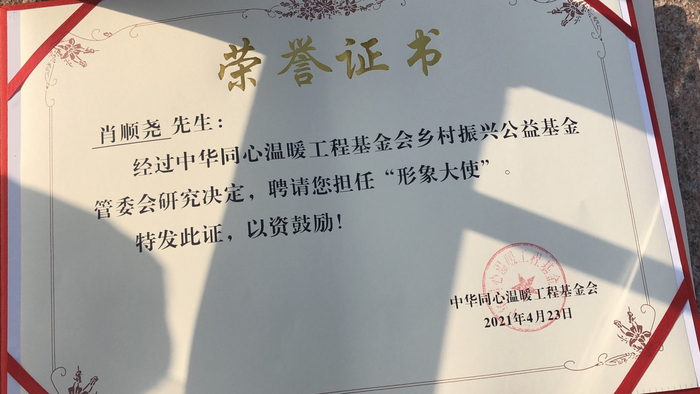 荣誉证书
肖顺尧 先生：
经过中华同心温暖工程基金会乡村振兴公益基金
管委会研究决定，聘请您担任“形象大使”。
特发此证，以资鼓励！
中华同心温暖工程基金会
2021年4月23日